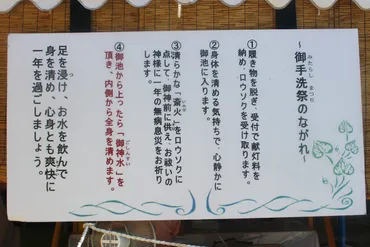 ～御手洗祭のながれ～
みたらしまつり
①履き物を脱ぎ、受付で献灯料を
納め、ロウソクを受け取ります。
②身体を清める気持ちで、心静かに
御池に入ります。
③清らかな「斎火」をロウソクに
いみび
点して、御神前に供え、お祓いの
神様に一年の無病息災をお祈り
します。
④御池から上ったら「御神水」を
ごしんすい
頂き、内側から全身を清めます。
足を浸け、お水を飲んで
つ
身を清め、心身とも爽快に
一年を過ごしましょう。